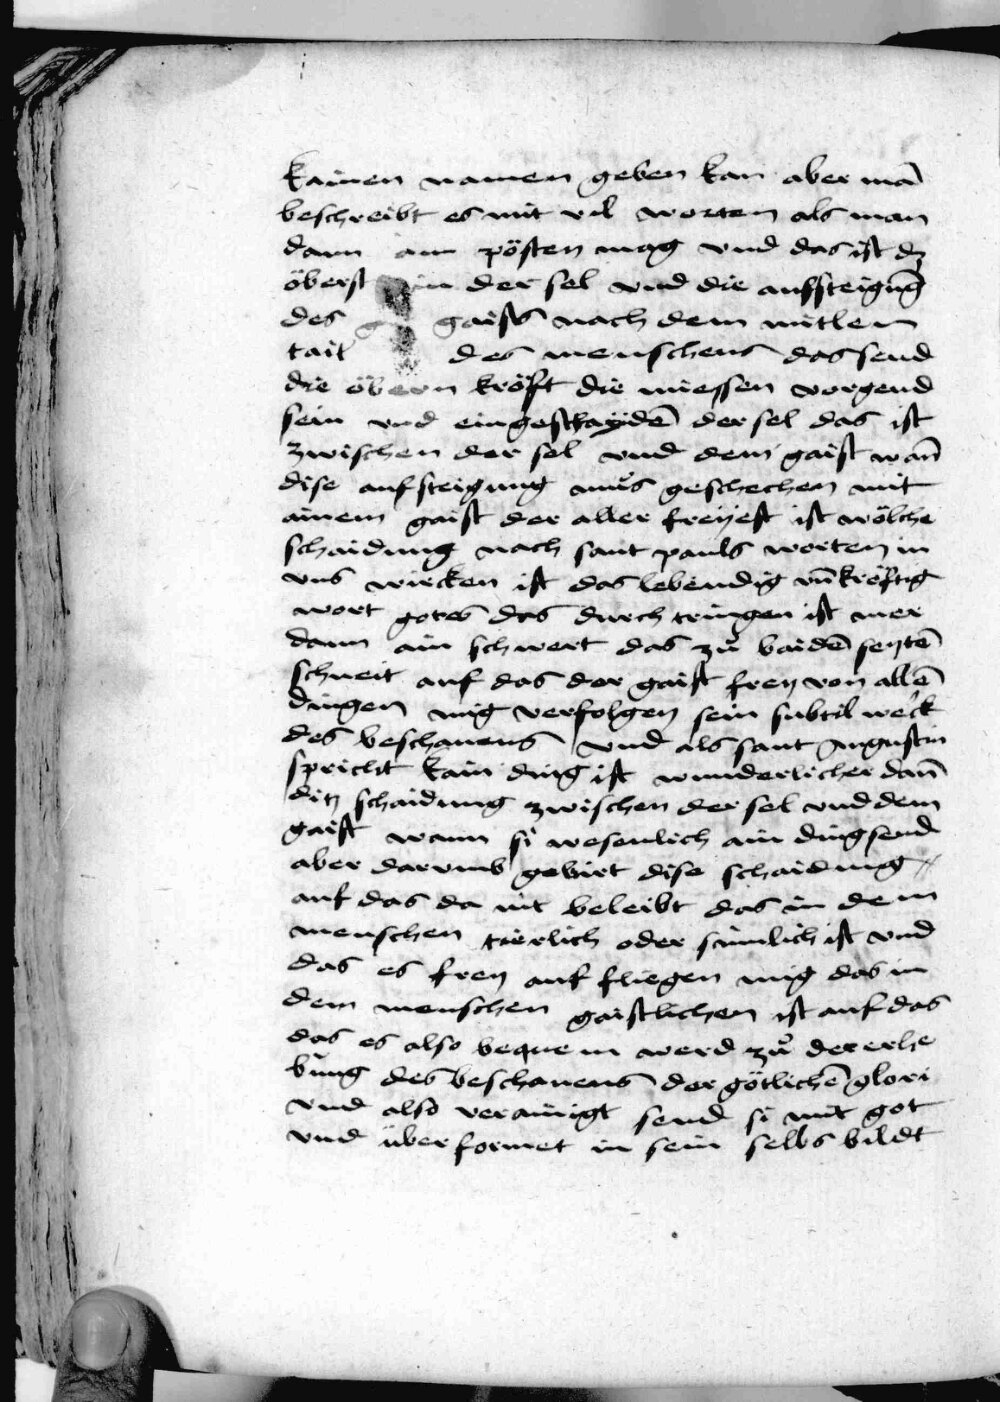 kainen namen geben kan aber mā
beschreibt es mit vil worten als man
dann am pösten mag vnd das ist dz
öberst in der sel vnd die aufsteigūg
des gaists nach dem mitlem
tail des menschens das send
die öbern kröft die miessen vorgend
sein vnd eingeschayden̄ der sel das ist
zwischen der sel vnd dem gaist wan̄
dise aufsteigung muͦs geschechen mit
ainem gaist der aller freyest ist wölche
schaidung nach sant pauls worten in
vns wircken ist das lebendig vn̄ kröftig
wort gotes das durch tringen ist mer
dann ain schwert das zuͦ baidē seytē
schneit auf das der gaist frey von allē
dingen mig verfolgen sein subtil werck
des beschauens vnd als sant augustin
spricht kain ding ist wunderlicher dan̄
ditz schaidung zwischen der sel vnd dem
gaist wann si wesenlich ain ding send
aber darumb gebirt dise schaidung //
auf das da nit beleibt das in dem
menschen tierlich oder sinnlich ist vnd
das es frey auf fliegen mig das in
dem menschen gaistlichen ist auf das
das es also bequem werd zuͦ der erhe
bung des beschauens der götlichē glori
vnd also verainigt send si mit got
vnd überformet in sein selbs bildt